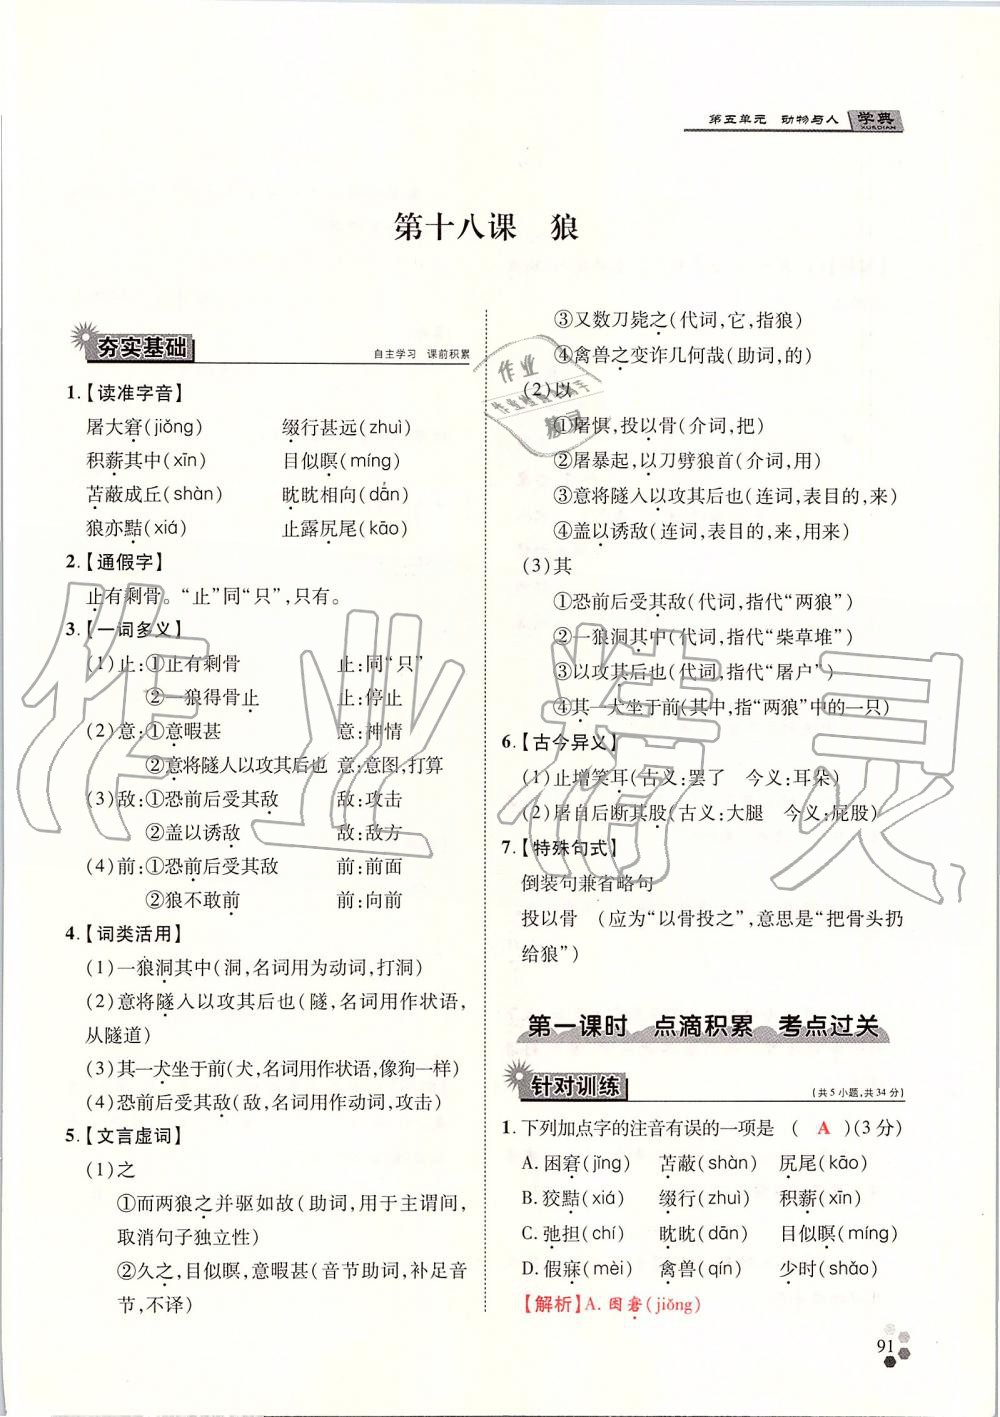 第五单元　动物与人
学典
XUEDIAN
第十八课　狼
夯实基础
自主学习　课前积累
1.【读准字音】
屠大窘(jiǒng)　缀行甚远(zhuì)
积薪其中(xīn)　目似瞑(míng)
苫蔽成丘(shàn)　眈眈相向(dān)
狼亦黠(xiá)　止露尻尾(kāo)
2.【通假字】
止有剩骨。“止”同“只”,只有。
3.【一词多义】
(1)止:①止有剩骨　止:同“只”
②一狼得骨止　止:停止
(2)意:①意暇甚　意:神情
②意将隧入以攻其后也　意:意图,打算
(3)敌:①恐前后受其敌　敌:攻击
②盖以诱敌　敌:敌方
(4)前:①恐前后受其敌　前:前面
②狼不敢前　前:向前
4.【词类活用】
(1)一狼洞其中(洞,名词用为动词,打洞)
(2)意将隧入以攻其后也(隧,名词用作状语,
从隧道)
(3)其一犬坐于前(犬,名词用作状语,像狗一样)
(4)恐前后受其敌(敌,名词用作动词,攻击)
5.【文言虚词】
(1)之
①而两狼之并驱如故(助词,用于主谓间,
取消句子独立性)
②久之,目似瞑,意暇甚(音节助词,补足音
节,不译)
③又数刀毙之(代词,它,指狼)
④禽兽之变诈几何哉(助词,的)
(2)以
①屠惧,投以骨(介词,把)
②屠暴起,以刀劈狼首(介词,用)
③意将隧入以攻其后也(连词,表目的,来)
④盖以诱敌(连词,表目的,来,用来)
(3)其
①恐前后受其敌(代词,指代“两狼”)
②一狼洞其中(代词,指代“柴草堆”)
③以攻其后也(代词,指代“屠户”)
④其一犬坐于前(其中,指“两狼”中的一只)
6.【古今异义】
(1)止增笑耳(古义:罢了　今义:耳朵)
(2)屠自后断其股(古义:大腿　今义:屁股)
7.【特殊句式】
倒装句兼省略句
投以骨　(应为“以骨投之”,意思是“把骨头扔
给狼”)
第一课时　点滴积累　考点过关
针对训练
(共5小题,共34分)
1.下列加点字的注音有误的一项是　(　A　)(3分)
A.困窘(jǐng)　苫蔽(shàn)　尻尾(kāo)
B.狡黠(xiá)　缀行(zhuì)　积薪(xīn)
C.弛担(chí)　眈眈(dān)　目似瞑(míng)
D.假寐(mèi)　禽兽(qín)　少时(shǎo)
【解析】A.困窘(jiǒng)
91
作业精灵